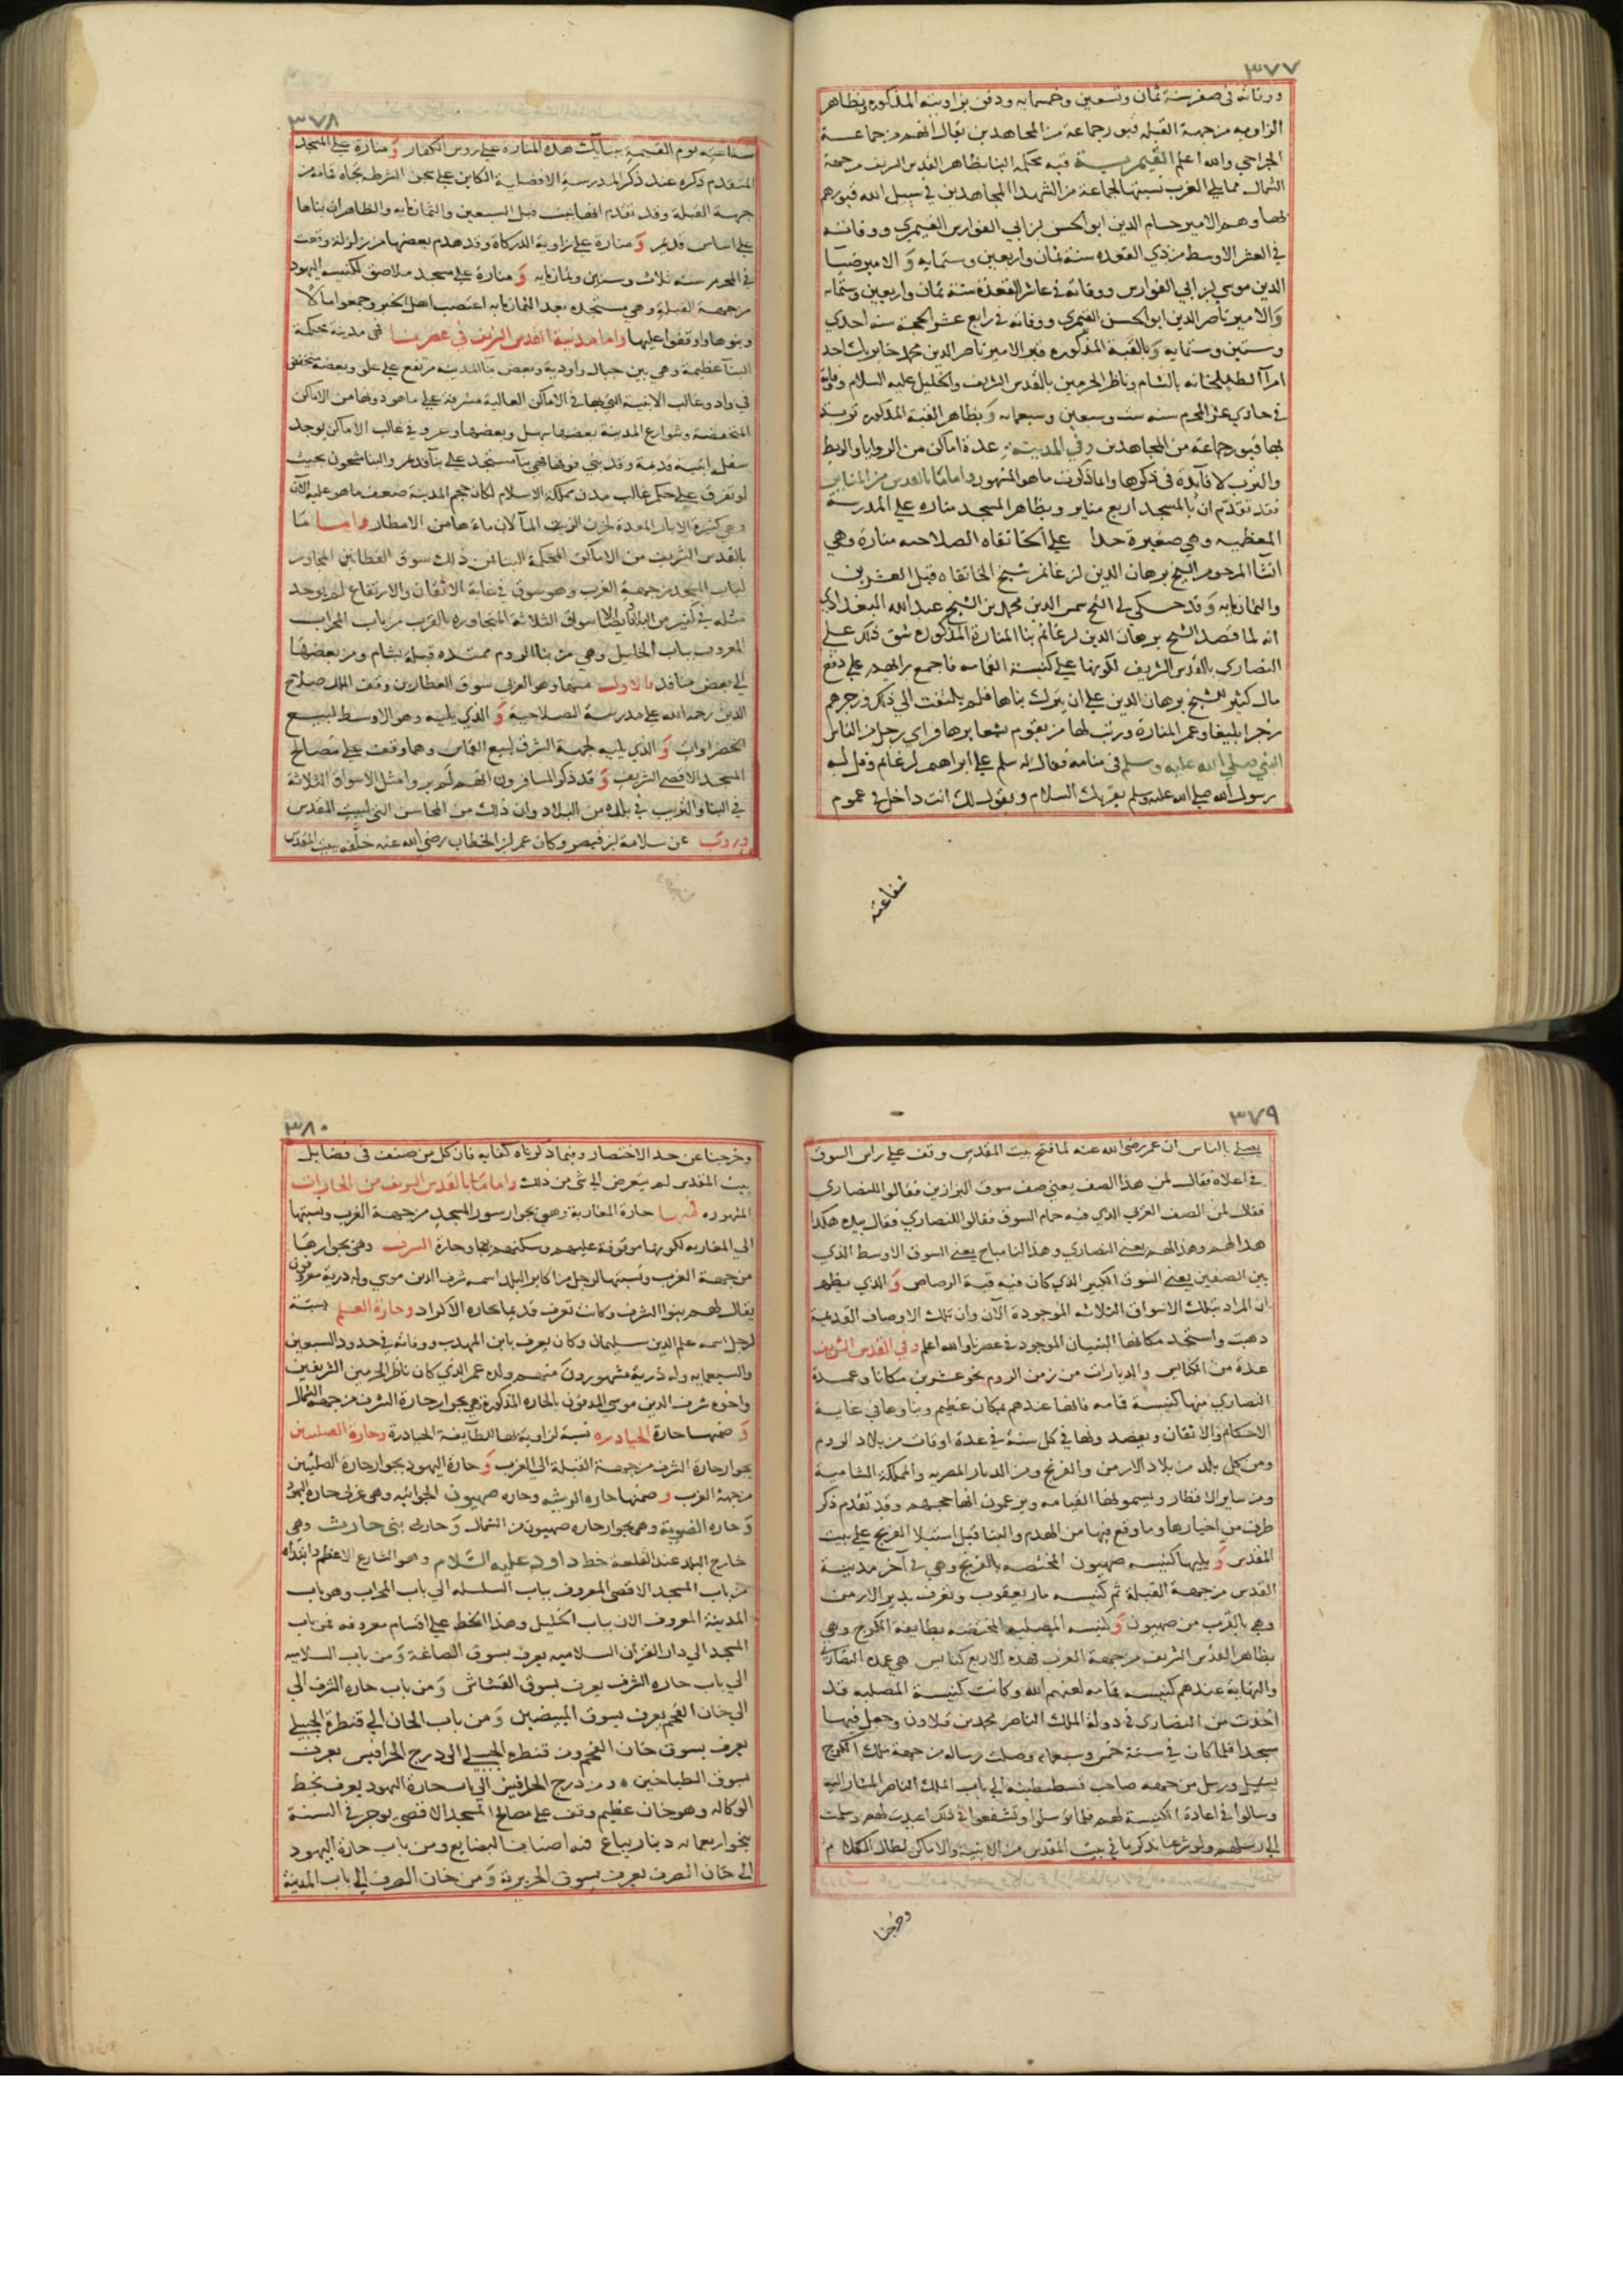 ٣٧٧
ووفاته في صفر سنة ثمان وتسعين وخمسمايه ودفن بزاويته المذكوره وبظاهر
الزاويه من جهة القبله قبور جماعة من المجاهدين يقال انهم من جماعة
الجراحي والله اعلم القيمرية قبه محكمة البنا بظاهر القدس الشريف من جهة
الشمال مما يلي الغرب نسبتها لجماعة من الشهدا المجاهدين في سبيل الله قبورهم
بها وهم الامير حسام الدين ابو الحسن بن ابي الفوارس القيمري ووفاته
في العشر الاوسط من ذي القعده سنة ثمان واربعين وستمايه وَ الامير ضيا
الدين موسي بن ابي الفوارس ووفاته في عاشر القعدة سنة ثمان واربعين وستمايه
وَ الامير ناصر الدين ابو الحسن القيمري ووفاته في رابع عشر الحجة سنه احدي
وستين وستمايه وَبالقبة المذكوره قبر الامير ناصر الدين محمد جابر بك احد
امرآ الطبلخانه بالشام وناظر الحرمين بالقدس الشريف والخليل عليه السلام وفاته
في حادي عشر المحرم سنه ست وسبعين وسبعمايه وَ بظاهر القبة المذكوره تربة
بها قبور جماعة من المجاهدين وفي المدينة عدة اماكن من الزوايا والربط
والترب لا فآيدة في ذكرها وانما ذكرت ما هو المشهور واما ما بالقدس من المناير
فقد تقدم ان بالمسجد اربع مناير وبظاهر المسجد مناره علي المدرسة
المعظميه وهي صغيرة جدا علي الخانقاه الصلاحيه منارة وهي
انشا المرحوم الشيخ برهان الدين بن غانم شيخ الخانقاه قبل العشرين
والثمانمايه وَ قد حكي لي الشيخ شمس الدين محمد بن الشيخ عبدالله البغدادي
انه لما قصد الشيخ برهان الدين بن غانم بنا المنارة المذكوره شق ذلك علي
النصاري بالقدس الشريف لكونها علي كنيسة القمامه فاجمع رايهم علي دفع
مال كثير للشيخ برهان الدين علي ان يترك بناها فلم يلتفت الي ذلك وزجرهم
زجرا بليغا وعمر المنارة ورتب لها من يقوم بشعايرها وراي رجل من الناس
النبي صلي الله عليه وسلم في منامه فقال له سلم علي ابراهيم بن غانم وقل له
رسول الله صلي الله عليه وسلم يقريك السلام ويقول لك انت داخل في عموم
شفاعته
٣٧٨
شفاعتي يوم القيمة ببنآيك هذه المنارة علي روس الكفار وَ منارة علي المسجد
المتقدم ذكره عند ذكر المدرسة الافضلية الكاين علي صحن الشرطه تجاه قمامه من
جهة القبلة وقد تقدم انها بنيت قبل السبعين والثمانمايه والظاهر ان بناها
علي اساس قديم وَ منارة علي زاوية الدركاة وقد هدم بعضها من زلزلة وقعت
في المحرم سنه ثلاث وستين وثمانمايه وَ منارة علي مسجد ملاصق لكنيسة اليهود
من جهة القبلة وهي مستجده بعد الثمانمايه اعتصب اهل الخير وجمعوا مالًا
وبنوها واوقفوا عليها واما مدينة القدس الشريف في عصرنا فهي مدينة محكمة
البنآ عظيمة وهي بين جبال واودية وبعض بنا المدينه مرتفع علي علو وبعضه منخفض
في واد وغالب الابنية التي بها في الاماكن العالية مشرفة علي ما هو دونها من الاماكن
المنخفضة وشوارع المدينة بعضها سهل وبعضها وعر وفي غالب الاماكن يوجد
سفل ابنية قديمة وقد بني فوقها بنآ مستجد علي بنآ قديم والبنا مشحون بحيث
لو تفرق علي حكم غالب مدن مملكة الاسلام لكان حجم المدينة ضعف ما هو عليه الآن
وهي كثيرة الابار المعدة لخزن المآ لان ماءها من الامطار واما ما
بالقدس الشريف من الاماكن المحكمة البنا فمن ذلك سوق القطانين المجاور
لباب المسجد من جهة الغرب وهو سوق في غاية الاتقان والارتفاع لم يوجد
مثله في كثير من البلاد وايضا الاسواق الثلاثة المجاوره بالقرب من باب المحراب
المعروف بباب الخليل وهي من بنا الروم ممتده قبلة بشام ومن بعضها
الي بعض منافذ فالاول منها وهو الغربي سوق العطارين وقف الملك صلاح
الدين رحمه الله علي مدرسته الصلاحية وَ الذي يليه وهو الاوسط لبيع
الخضراوات وَ الذي يليه لجهة الشرق لبيع القماش وهما وقف علي مصالح
المسجد الاقصي الشريف وَ قد ذكر المسافرون انهم لم يروا مثل الاسواق الثلاثة
في البنا والترتيب في بلدة من البلاد وان ذلك من المحاسن التي لبيت المقدس
وروي عن سلامة بن قيصر وكان عمر بن الخطاب رضي الله عنه خلفه ببيت المقدس
٣٧٩
يصلي بالناس ان عمر رضي الله عنه لما فتح بيت المقدس وقف علي راس السوق
في اعلاه فقال لمن هذا الصف يعني صف سوق البزازين فقالوا للنصاري
فقال لمن الصف الغربي الذي فيه حمام السوق فقالوا للنصاري فقال بيده هكذا
هذا لهم وهذا لهم يعني النصاري وهذا لنا مباح يعني السوق الاوسط الذي
بين الصفين يعني السوق الكبير الذي كان فيه قبة الرصاص وَ الذي يظهر
ان المراد بتلك الاسواق الثلاثه الموجودة الآن وان تلك الاوصاف القديمة
ذهبت واستجد مكانها البنيان الموجود في عصرنا والله اعلم وفي القدس الشريف
عدة من الكنايس والديارات من زمن الروم نحو عشرين مكانا وعمدة
النصاري منها كنيسة قمامه فانها عندهم بمكان عظيم وبناوها في غاية
الاحكام والاتقان ويقصدونها في كل سنة في عدة اوقات من بلاد الروم
ومن كل بلد من بلاد الارمن والفرنج ومن الديار المصريه والمملكة الشامية
ومن ساير الاقطار ويسمونها القيامه ويزعمون انها حجهم وقد تقدم ذكر
طرف من اخبارها وما وقع فيها من الهدم والبنا قبل استيلا الفرنج علي بيت
المقدس وَ يليها كنيسه صهيون المختصه بالفرنج وهي في آخر مدينة
القدس من جهة القبلة ثم كنيسه مار يعقوب وتعرف بدير الارمن
وهي بالقرب من صهيون وَ كنيسه المصلبه المختصه بطايفة الكرج وهي
بظاهر القدس الشريف من جهة الغرب فهذه الاربع كنايس هي عمدة النصاري
والنهاية عندهم كنيسه قمامه لعنهم الله وكانت كنيسة المصلبه قد
اخذت من النصاري في دولة الملك الناصر محمد بن قلاون وجعل فيها
مسجدا فلما كان في سنة خمس وسبعمايه وصلت رساله من جهة ملك الكرج
ورسل من جهه صاحب قسطنطينه الي باب الملك الناصر المشار اليه
وسالوا في اعادة الكنيسة لهم فلما توسلوا وتشفعوا في ذلك اعيدت لهم وسلمت
الي رسلهم ولو شرعنا بذكر ما في بيت المقدس من الابنية والاماكن لطال الكلام
وخرجنا
٣٨٠
وخرجنا عن حد الاختصار وفيما ذكرناه كفايه فان كل من صنف في فضايل
بيت المقدس لم يتعرض الي شي من ذلك واما ما بالقدس الشريف من الحارات
المشهوره فمنها حارة المغاربة وهي بجوار سور المسجد من جهة الغرب ونسبتها
الي المغاربه لكونها موقوفة عليهم وسكنهم بها وحارة الشرف وهي بجوارها
من جهة الغرب ونسبتها لرجل من اكابر البلد اسمه شرف الدين موسي وله ذرية معروفون
يقال لهم بنوا الشرف وكانت تعرف قديما بحارة الاكراد وحارة العلم نسبة
لرجل اسمه علم الدين سليمان وكان يعرف بابن المهذب ووفاته في حدود السبعين
والسبعمايه وله ذرية مشهورون منهم ولده عمر الذي كان ناظر الحرمين الشريفين
واخوه شرف الدين موسي المدفون بالحاره المذكورة وهي بجوار حارة الشرف من جهة الشمال
وَ ضمنها حارة الحيادره نسبة لزاوية بها لطآيفة الحيادرة وحارة الصلتين
بجوار حارة الشرف من جهة القبلة الي الغرب وَ حارة اليهود بجوار حارة الصلتين
من جهة الغرب وضمنها حاره الريشه وحاره صهيون الجوانيه وهي غربي حاره اليهود
وَ حاره الضوية وهي بجوار حاره صهيون من الشمال وَ حارة بني حارث وهي
خارج البلد عند القلعة خط داود عليه السّلام وهو الشارع الاعظم وابتداه
من باب المسجد الاقصي المعروف بباب السلسله الي باب المحراب وهو باب
المدينة المعروف الان بباب الخليل وهذا الخط علي اقسام معروفه فمن باب
المسجد الي دار القران السلاميه يعرف بسوق الصاغة وَمن باب السلاميه
الي باب حاره الشرف يعرف بسوق القشاش وَ من باب حاره الشرف الي
الي خان الفحم يعرف بسوق المبيضين وَ من باب الخان الي قنطرة الجبيلي
يعرف بسوق خان الفحم ومن قنطره الجبيلي الي درج الحرافيش يعرف
بسوق الطباخين ومن درج الحرافيش الي باب حارة اليهود يعرف بخط
الوكاله وهو خان عظيم وقف علي مصالح المسجد الاقصي يوجر في السنة
بنحو اربعمايه دينار يباع فيه اصناف البضايع ومن باب حارة اليهود
الي خان الصرف يعرف بسوق الحريرية وَ من خان الصرف الي باب المدينة